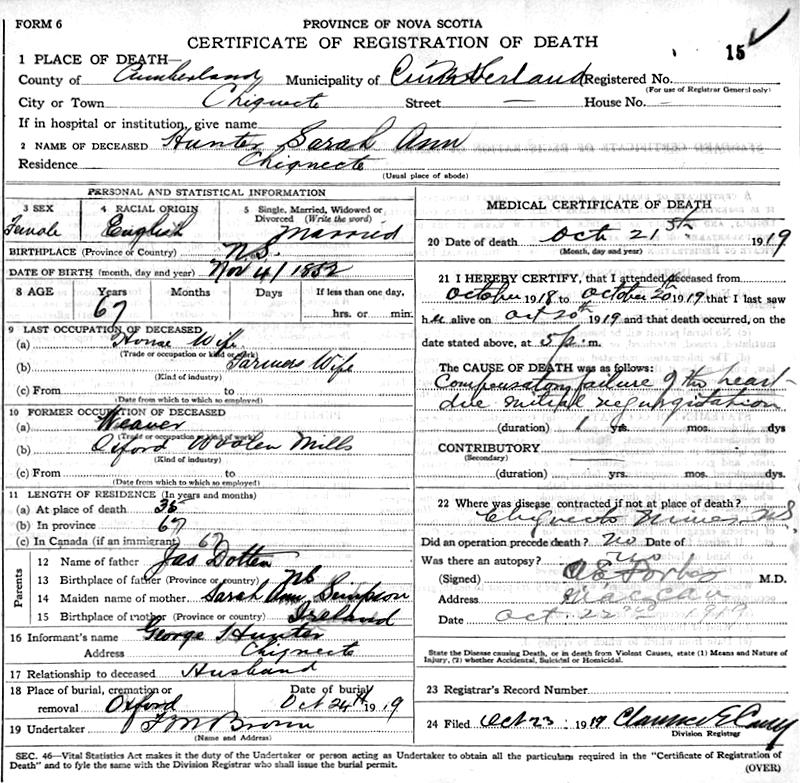 FORM 6
PROVINCE OF NOVA SCOTIA
CERTIFICATE OF REGISTRATION OF DEATH
15
1 PLACE OF DEATH—
County of Cumberland Municipality of Cumberland Registered No.
(For use of Registrar General only)
City or Town Chignecto Street — House No. –
If in hospital or institution, give name
2 NAME OF DECEASED Hunter Sarah Ann
Residence Chignecto
(Usual place of abode)
PERSONAL AND STATISTICAL INFORMATION
3 SEX 4 RACIAL ORIGIN 5 Single, Married, Widowed or Divorced (Write the word)
Female English Married
BIRTHPLACE (Province or Country) N.S.
DATE OF BIRTH (month, day and year) Nov 4/1852
8 AGE Years Months Days If less than one day,
67 hrs. or min.
9 LAST OCCUPATION OF DECEASED
(a) House Wife
(Trade or occupation or kind of work)
(b) Farmers Wife
(Kind of industry)
(c) From to
(Date from which to which so employed)
10 FORMER OCCUPATION OF DECEASED
(a) Weaver
(Trade or occupation or kind of work)
(b) Oxford Woolen Mills
(Kind of industry)
(c) From to
(Date from which to which so employed)
11 LENGTH OF RESIDENCE (In years and months)
(a) At place of death 35
(b) In province 67
(c) In Canada (if an immigrant) 67
Parents
12 Name of father Jas Dotten
13 Birthplace of father (Province or country) NS
14 Maiden name of mother Sarah Ann Simpson
15 Birthplace of mother (Province or country) Ireland
16 Informant's name George Hunter
Address Chignecto
17 Relationship to deceased Husband
18 Place of burial, cremation or removal Oxford Date of burial Oct 24th 1919
19 Undertaker F M Brown
(Name and Address)
MEDICAL CERTIFICATE OF DEATH
20 Date of death Oct 21st 1919
(Month, day and year)
21 I HEREBY CERTIFY, that I attended deceased from
October 1918 to October 20th 1919 that I last saw
her alive on Oct 20th 1919 and that death occurred, on the
date stated above, at 5 p. m.
The CAUSE OF DEATH was as follows:
Compensatory failure of the heart
due mitral regurgitation
(duration) 1 yrs. mos. dys
CONTRIBUTORY
(Secondary)
(duration) yrs. mos. dys.
22 Where was disease contracted if not at place of death?
Chignecto Mines NS
Did an operation precede death? no Date of
Was there an autopsy? no
(Signed) A E Forbes M.D.
Address Maccan
Date Oct. 22nd 1919
State the Disease causing Death, or in death from Violent Causes, state (1) Means and Nature of
Injury, (2) whether Accidental, Suicidal or Homicidal.
23 Registrar's Record Number
24 Filed Oct 23 1919 Clarence E
Division Registrar
SEC. 46—Vital Statistics Act makes it the duty of the Undertaker or person acting as Undertaker to obtain all the particulars required in the "Certificate of Registration of
Death" and to fyle the same with the Division Registrar who shall issue the burial permit.
(OVER)